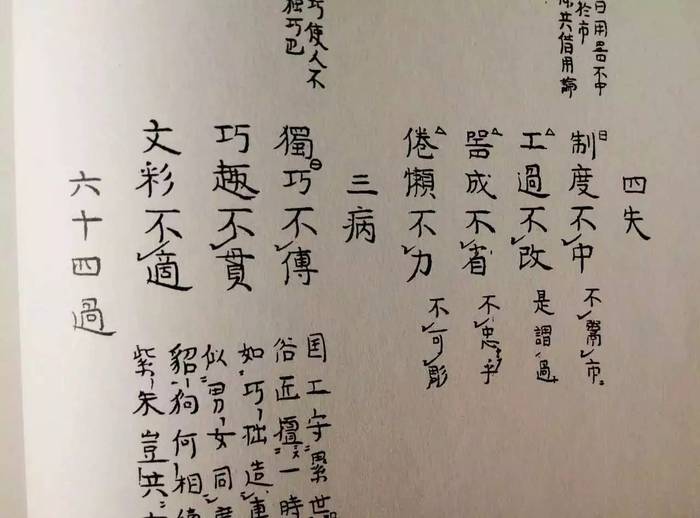 日用器不中
於市
共借用論
四失
制度不中 不鬻市
工過不改 是謂過
器成不省 不忠乎
倦懶不力 不可彫
三病
巧使人不
獨巧
獨巧不傳 国工守累世
俗匠擅一時
巧趣不貫 如巧拙造車
似男女同
文彩不適 貂狗何相
紫朱豈共
六十四過